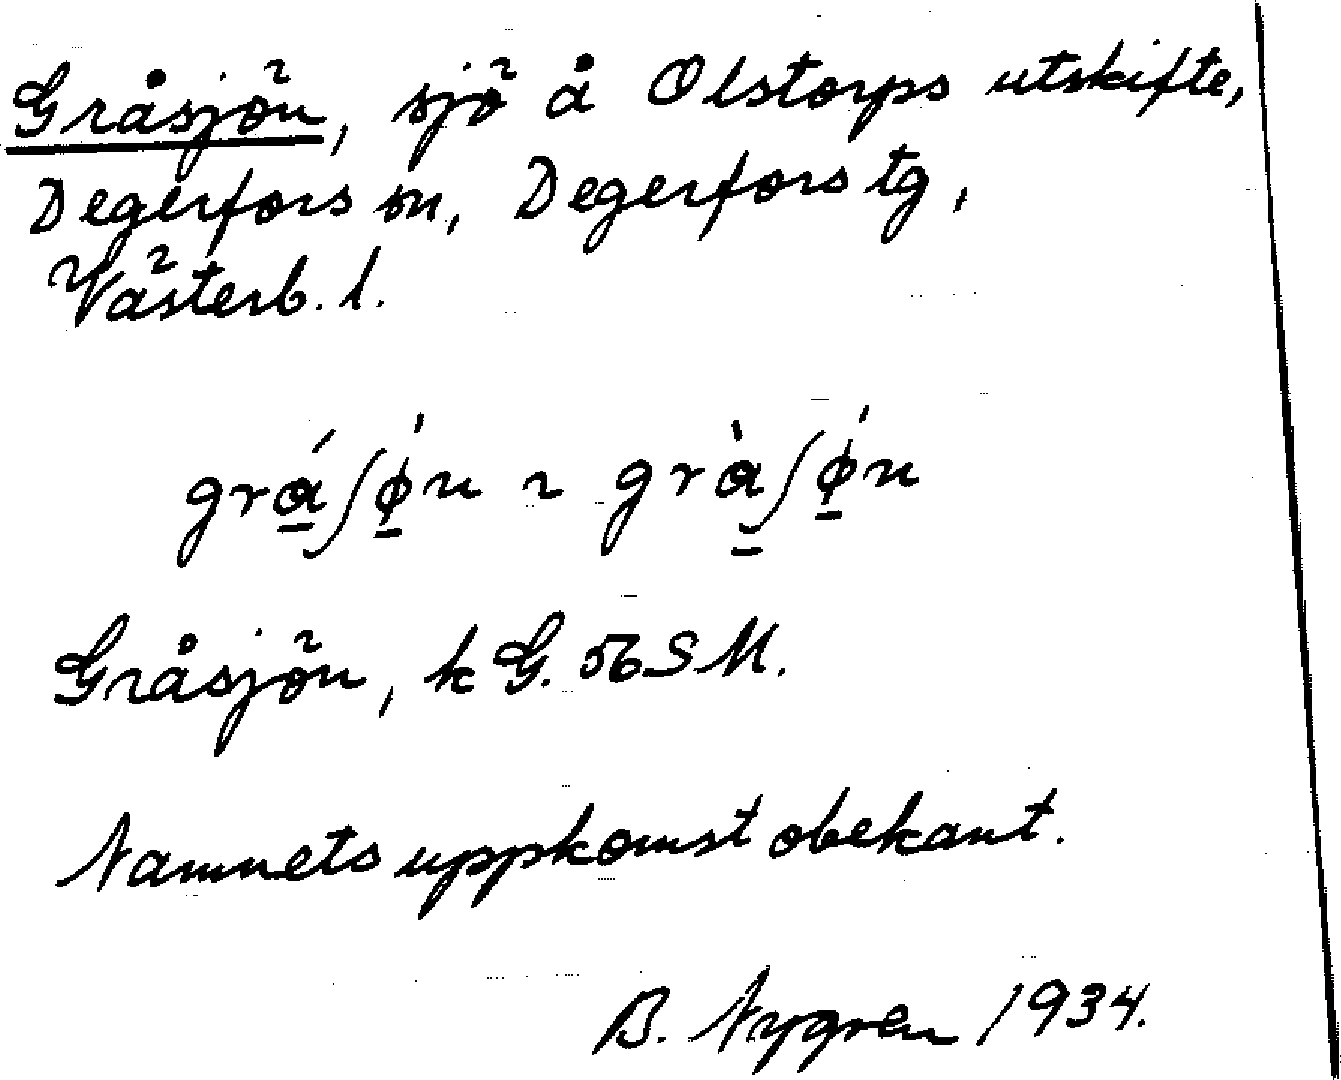 Gråsjön, sjö å Olstorps utskifte,
Degerfors sn, Degerfors tg,
Västerb. l.
grɑ́ʃø̀n ~ grɑ̀ʃǿn
Gråsjön, k G. 56 SM.
Namnets uppkomst obekant.
B. Nygren 1934.